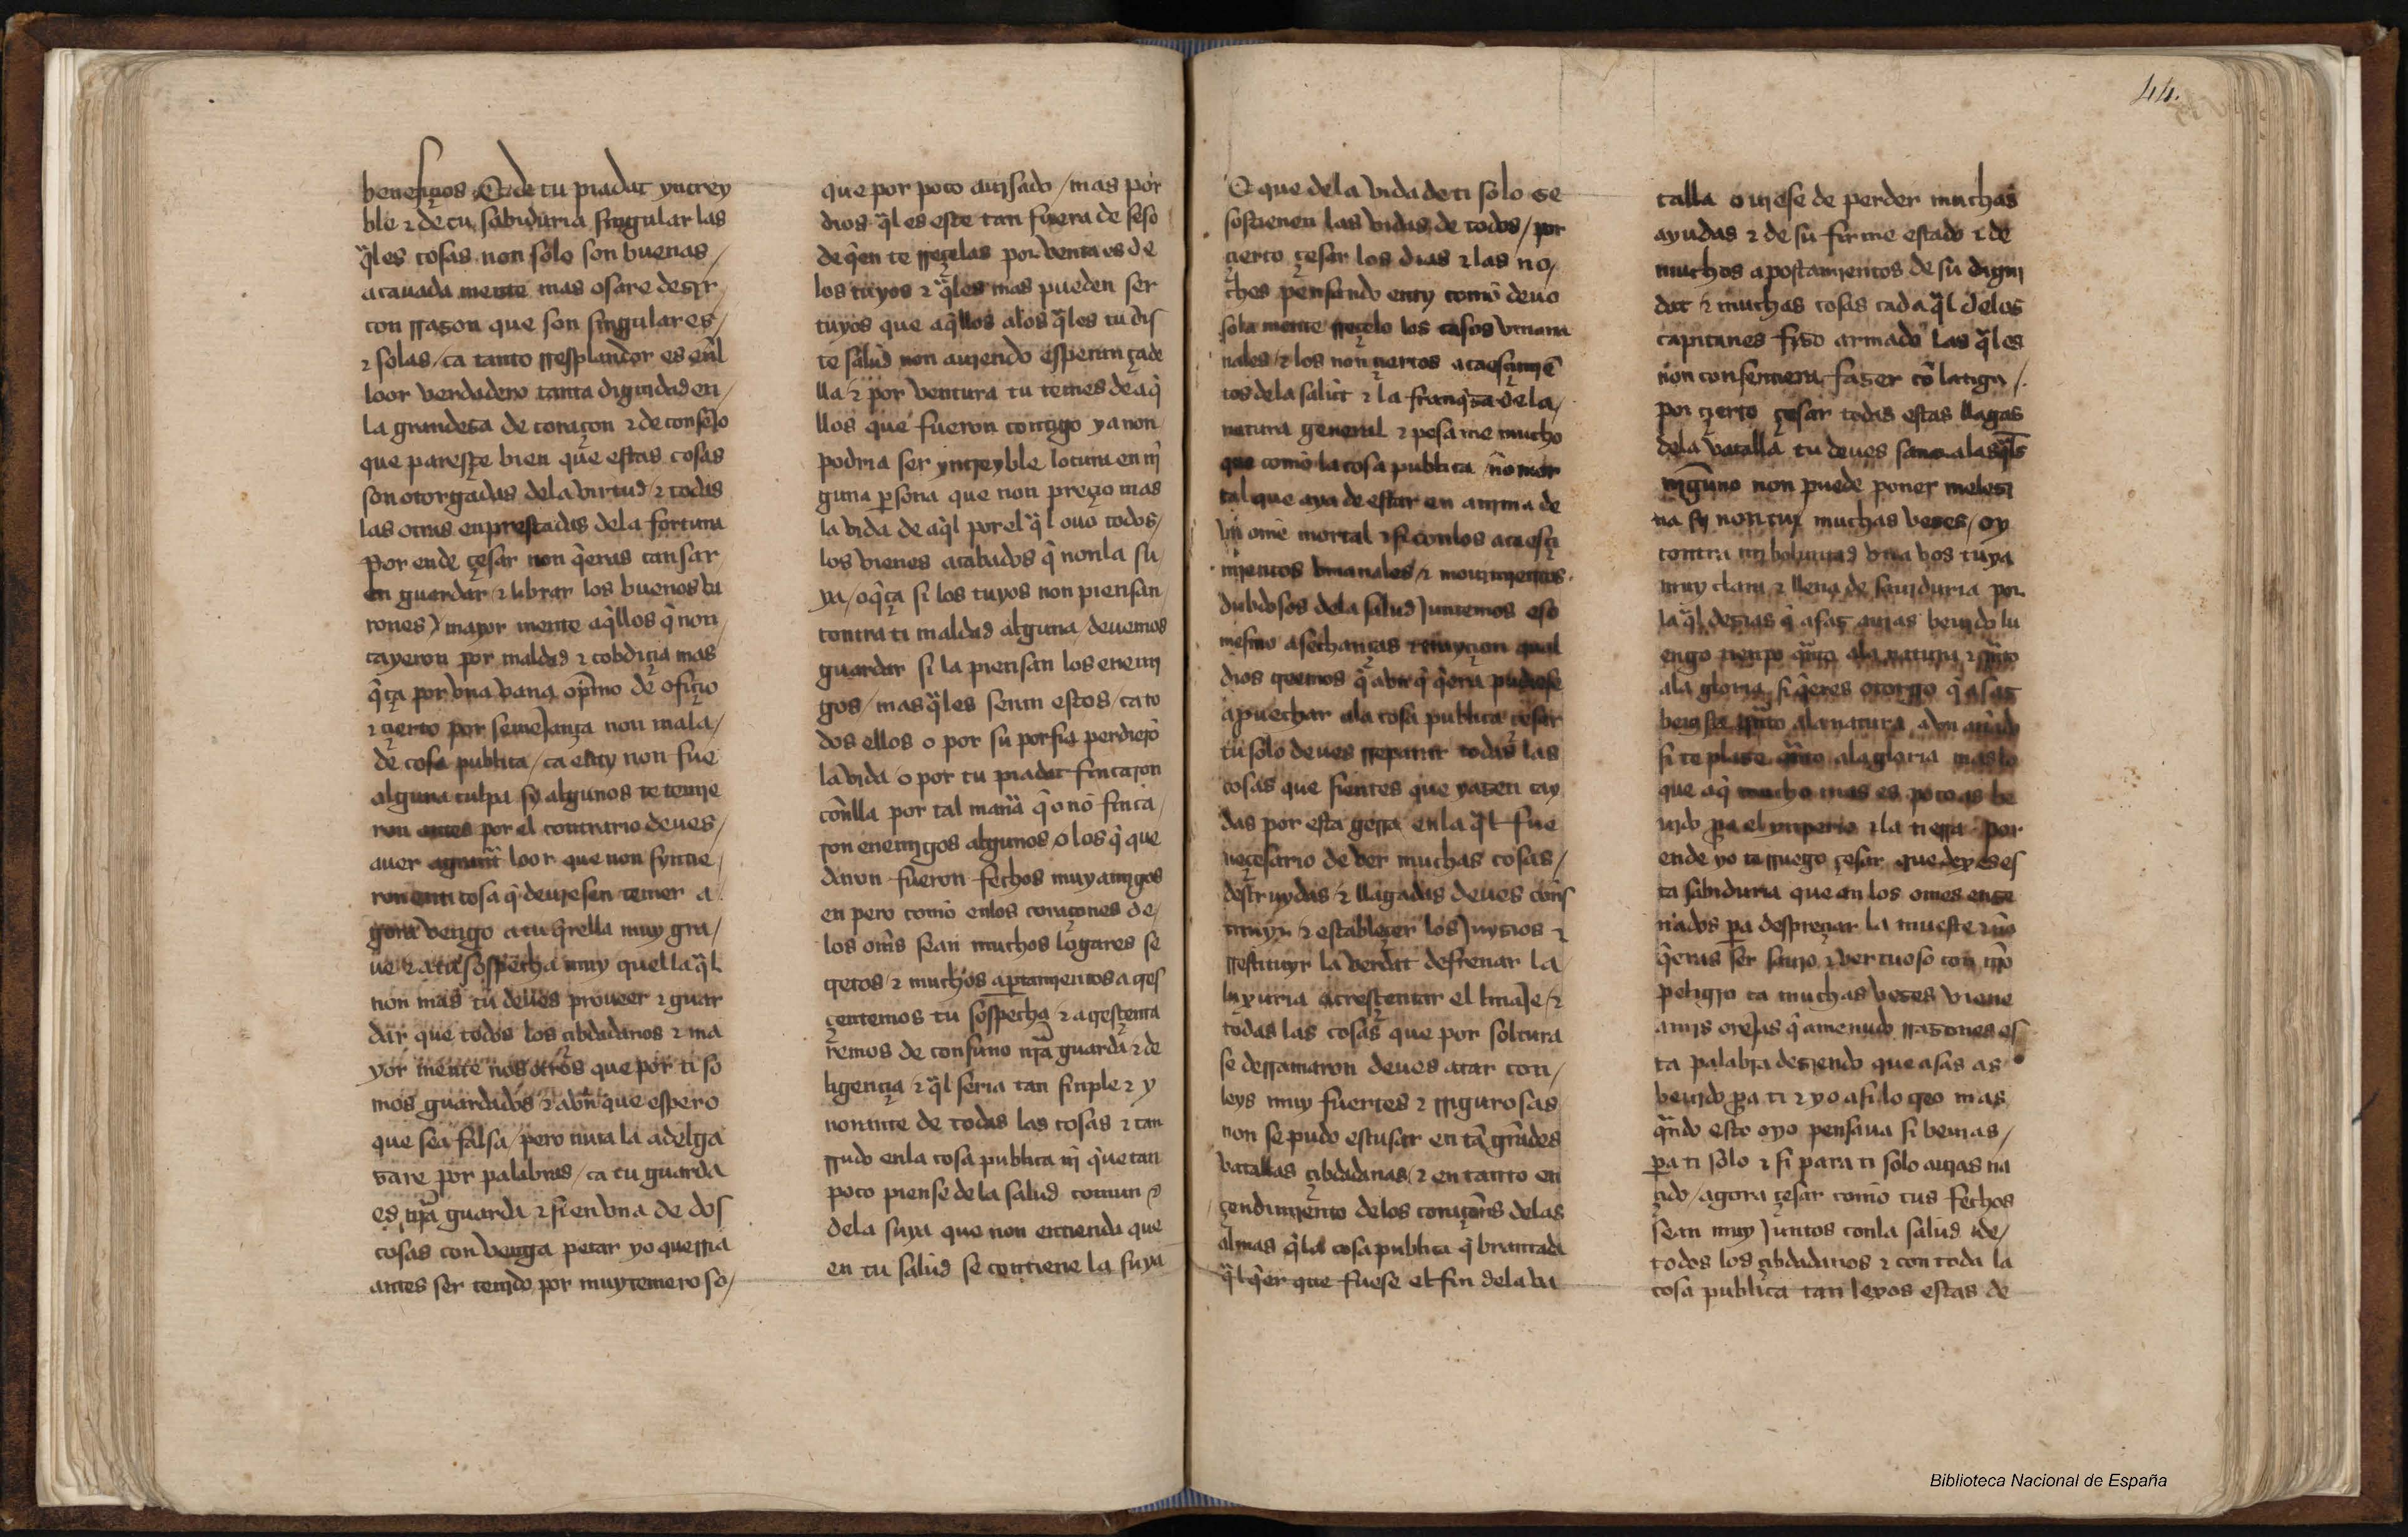 benefiçios Et de tu piadat yncrey
ble ⁊ de tu sabiduria singular las
q̃les cosas non solo son buenas /
acauada mente mas osare dezir /
con rrazon que son singulares /
⁊ solas / ca tanto rresplandor es eñl
loor verdadero tanta dignidad en /
la grandeza de coraçon ⁊ de conseJo
que paresçe bien que estas cosas
son otorgadas dela virtud / ⁊ todas
las otras enprestadas dela fortuna
Por ende çesar non q̃eras cansar
en guardar / ⁊ librar los buenos va
rones) mayor mente aq̃llos q̃ non /
cayeron por maldad ⁊ cobdiçia mas
q̃ça por vna vana opino de ofiçio
⁊ çierto por semeJança non mala /
de cosa publica / ca enty non fue
alguna culpa sy algunos te temie
ron antes por el contrario deues /
auer loor que non syntie /
ron cosa q̃ deuiesen temer a
gora vengo a tu q̃rella muy gra /
ue ⁊ a tu sospecha muy quella q̃l
non mas tu deues proueer ⁊ guar
dar que todos los çibdadanos ⁊ ma
yor mente nosotros que por ti so
mos guardados ⁊ avn que espero
que sea falsa / pero nunca la adelga
zare por palabras / ca tu guarda
es nr̃a guarda ⁊ si en vna de dos
cosas convenga pecar yo querria
antes ser tenido por muy temeroso /
que por poco auisado / mas por
dios q̃l es este tan fuera de seso
de q̃en te rreçelas por ventura es de
los tuyos ⁊ q̃les mas pueden ser
tuyos que aq̃llos alos q̃les tu dis
te salud non auiendo esperança de
lla / ⁊ por ventura tu temes de aq̃
llos que fueron contigo ya non
podria ser yncreyble locura en nī
guna p̃sona que non preçio mas
la vida de aq̃l por el q̃l ouo todos /
los vienes acabados q̃ non la su
ya / o q̃ça si los tuyos non piensan /
contra ti maldad alguna / deuemos
guardar si la piensan los enemi
gos / mas q̃les seran estos / ca to
dos ellos o por su porfia perdierō
la vida o por tu piadat fincaron
cõnlla por tal mañ̃a q̃ o nō finca /
ron enemigos algunos o los q̃ que
daron fueron fechos muy amigos
en pero como enlos coraçones de /
los oms̃ sean muchos logares se
cretos / ⁊ muchos apartamientos acres
çentemos tu sospecha ⁊ acresçenta
remos de consuno nr̃a guarda ⁊ de
ligençia / ⁊ q̃l seria tan sinple ⁊ y
norante de todas las cosas ⁊ tan
rrudo enla cosa publica nī q̃ue tan
poco piense dela salud comun ⁊
dela suya que non entienda que
en tu salud se contiene la suya
O que dela vida de ti solo se
sostienen las vidas de todos / por
çierto çesar los dias ⁊ las no /
ches pensando enty como deuo
sola mente rreçelo los casos vmana
nales / ⁊ los non çiertos acaesçimiē
tos dela salut ⁊ la franq̃za dela /
natura general ⁊ pesa me mucho
que como la cosa publica inmor
tal que aya de estar en anima de
vn ome mortal ⁊ si conlos acaesçi
mientos vmanales / ⁊ mouimientos
dubdosos dela salud Juntemos eso
mesmo asechanças qual
dios creemos q̃ avn q̃ q̃era pudiese
aprouechar ala cosa publica çesar
tu solo deues rreparar todas las
cosas que sientes que yazen cay
das por esta gerra enla q̃l fue
neçesario de ver muchas cosas /
destruydas / ⁊ llagadas deues cõns
tituyr ⁊ establecer los Juyzios ⁊
rrestituyr la verdat defrenar la /
luxuria acresçentar el linaJe / ⁊
todas las cosas que por soltura
se derramaron deues atar con /
leys muy fuertes ⁊ rrigurosas
non se pudo escusar en tã grãdes
batallas çibdadanas / ⁊ en tanto en
çendimiento delos coraçoñs delas
almas q̃la cosa publica q̃brantada
q̃lq̃er que fuese el fin dela ba
talla ouiese de perder muchas
ayudas ⁊ de su firme estado ⁊ de
muchos apostamientos de su digni
dat ⁊ muchas cosas cada q̃l delos
capitanes fizo armado las q̃les
non consentiera fazer cō la toga /.
por çierto çesar todas estas llagas
dela batalla tu deues sanar alas q̃ls
ninguno non puede poner melezi
na sy non tu / muchas vezes / oy
contra mi boluntad vna vos tuya
muy clara ⁊ llena de sauiduria por
la q̃l dezias q̃ asaz auias beuido lu
engo tienpo q̃nto ala natura ⁊ q̃nto
ala gloria si q̃eres otorgo q̃ asaz
beuiste q̃nto ala natura
si te plaze q̃nto ala gloria mas lo
que aq̃ mucho mas es poco as be
uido p̃a el ynperio ⁊ la tierra por
ende yo te rruego çesar que dexes es
ta sabiduria que en los omes ense
nados p̃a despreçiar la muerte ⁊ nō
q̃eras ser sauio ⁊ vertuoso con nr̃o
peligro ca muchas vezes viene
amis oreJas q̃ amenudo rrazones es
ta palabra deziendo que asas as
beuido p̃a ti ⁊ yo asi lo creo mas
q̃ndo esto oyo pensaua si beuias /
p̃a ti solo ⁊ si para ti solo auias na
çido / agora çesar como tus fechos
sean muy Juntos conla salud de /
todos los çibdadanos ⁊ con toda la
cosa publica tan lexos estas de
44.
Biblioteca Nacional de España